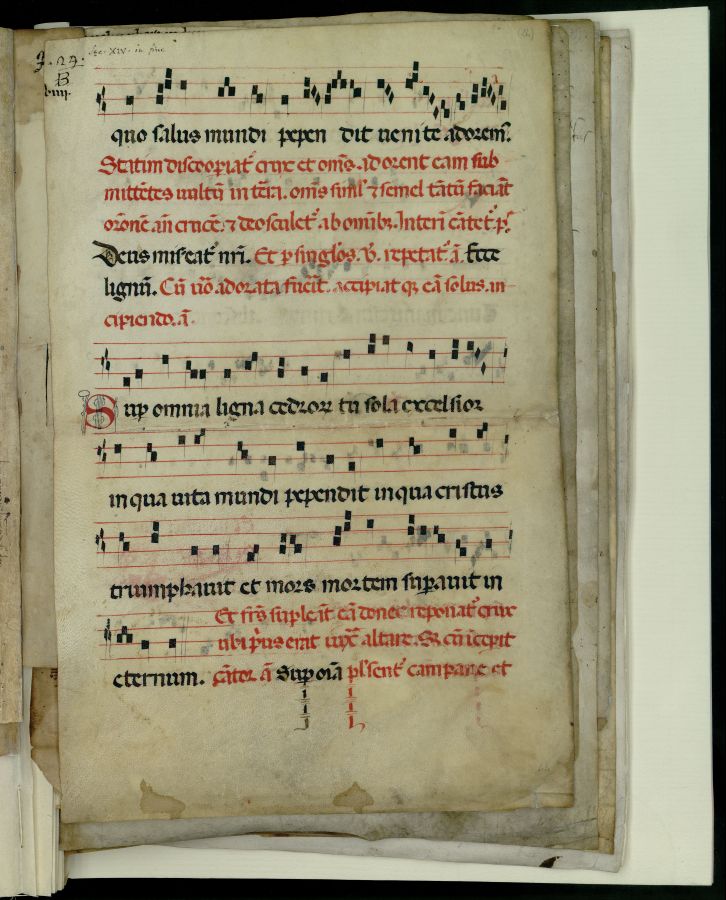 Sec. XIV. in fine
quo salus mundi pepen dit uenite adorem⁹.
Statim discooꝑiat᷑ crux et om̅s adorent eam sub
mittētes uultū in terra. om̅s simul ⁊ semel tātū faciāt
or̅onē an̅ crucē. ⁊ deosculet᷑ ab omnibꝫ. Interī cātet᷑ p̅s.
Deus miseat᷑ nr̅i. Et ꝑ singlos v̅. repetat᷑ a̅. Ecce
lignū. Cū uo̅ adorata fuerit. accipiat eā solus. in
cipiendo. a̅.
Suꝑ omnia ligna cedroꝝ tu sola excelsior
in qua uita mundi pependit in qua cristus
triumphauit et mors mortem suꝑauit in
Et fr̅s supleāt eā donec reponat᷑ crux
ubi pͥus erat iuxͣ altare. cū īcepit
eternum. cātor a̅ Suꝑ oīa pl̅sent᷑ campane et